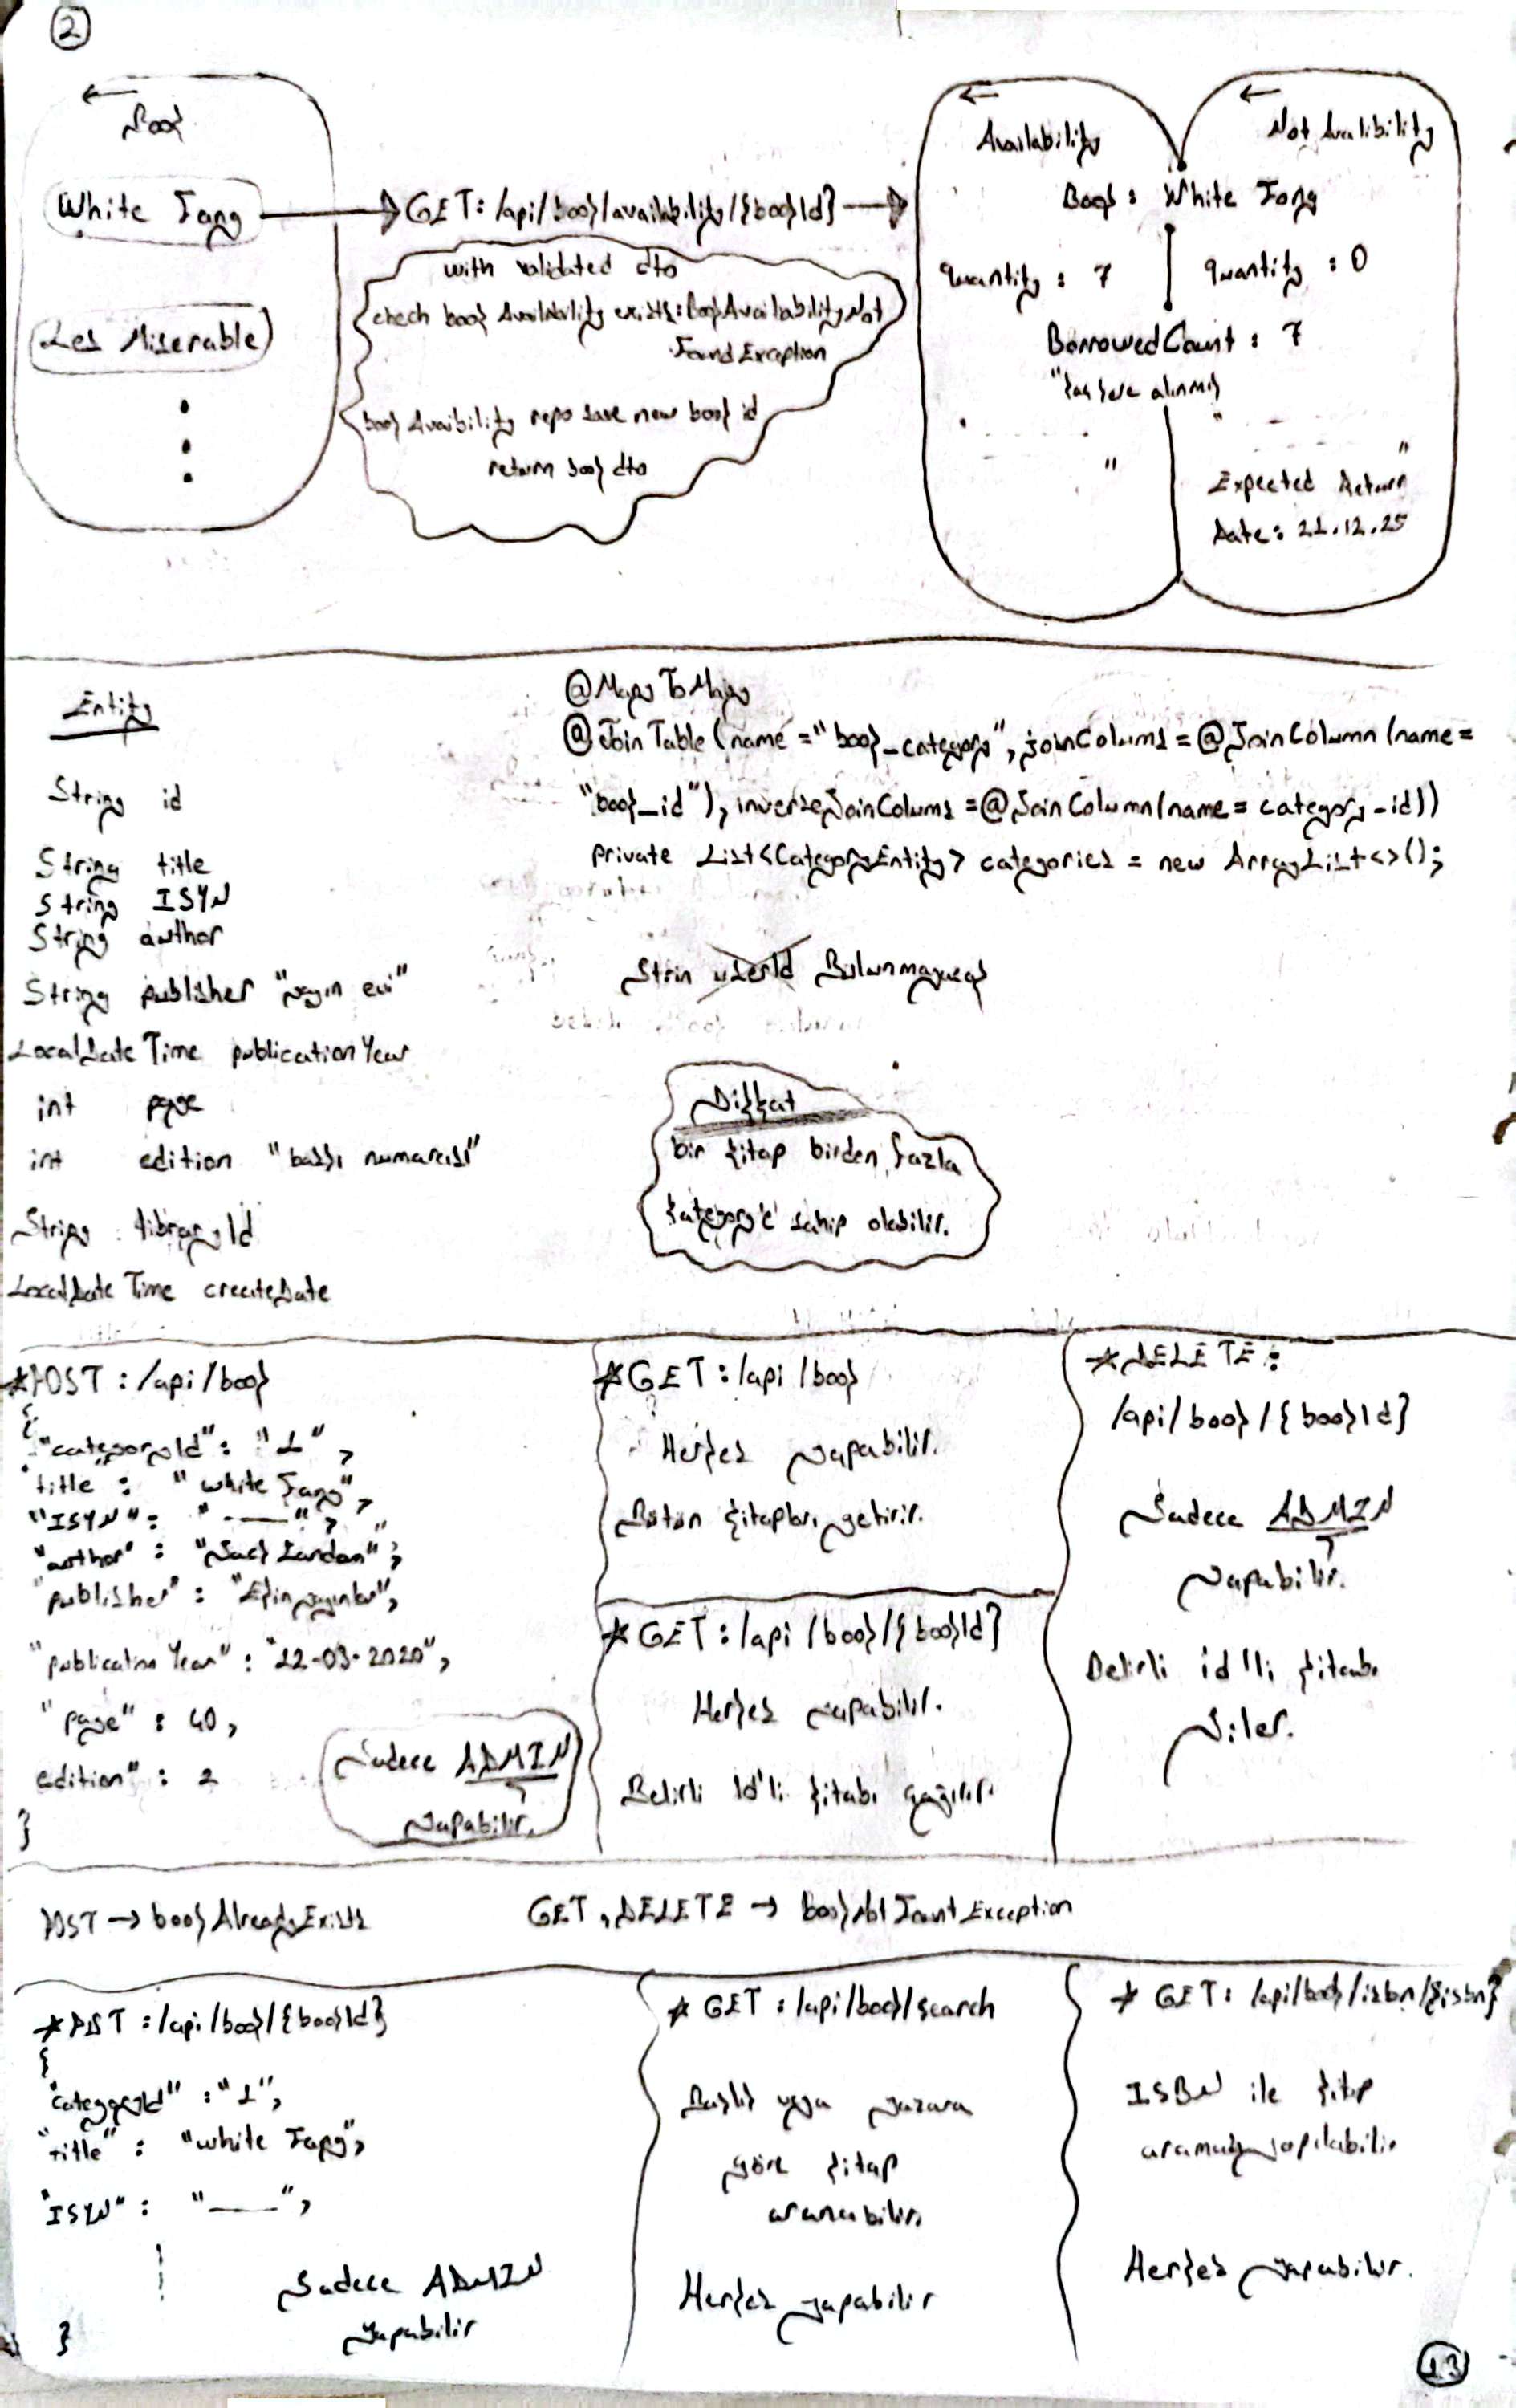 2
←
Book
White Fang
Les Miserable
GET: /api/book/availability/{bookId}
with validated dto
check book Availability exists: BookAvailabilityNot
Found Exception
book Avaibility repo save new book id
return book dto
←
Availability
←
Not Avalibility
Book : White Fang
quantity : 7
quantity : 0
BorrowedCount : 7
"kaç kere alınmış"
"
"
Expected Return
Date: 21.12.25
Entity
String id
String title
String ISYN
String author
String publisher "yayın evi"
LocalDateTime publicationYear
int page
int edition "baskı numarası"
String libraryId
LocalDateTime createDate
@ManyToMany
@JoinTable(name="book_category", joinColums=@JoinColumn(name=
"book_id"), inverseJoinColums=@JoinColumn(name= category_id))
private List<CategoryEntity> categories = new ArrayList<>();
Strin userId Bulunmayacak
Dikkat
bin kitap birden fazla
kategory'e sahip olabilir.
*POST : /api/book
{
"categoryId" : "1",
"title : "white Fang",
"ISYN" : "——",
"author" : "Jack London",
"publisher" : "Ekin yayınları",
"publication Year" : "22-03-2020",
"page" : 40,
edition" : 2
}
Sadece ADMIN
yapabilir.
*GET : /api/book
Herkes yapabilir.
Bütün kitapları getirir.
*GET : /api/book/{bookId}
Herkes yapabilir.
Belirli Id'li kitabı çağırır.
*DELETE :
/api/book/{bookId}
Sadece ADMIN
yapabilir.
Belirli id'li kitabı
siler.
POST → bookAlreadyExists
GET, DELETE → bookNotFountException
*POST : /api/book/{bookId}
{
"categoryId" : "1",
"title" : "white Fang",
"ISYN" : "——",
}
Sadece ADMIN
yapabilir
* GET : /api/book/search
Başlık veya yazara
göre kitap
aranabilir.
Herkes yapabilir
* GET : /api/book/isbn/{isbn}
ISBN ile kitap
araması yapılabilir.
Herkes yapabilir.
13